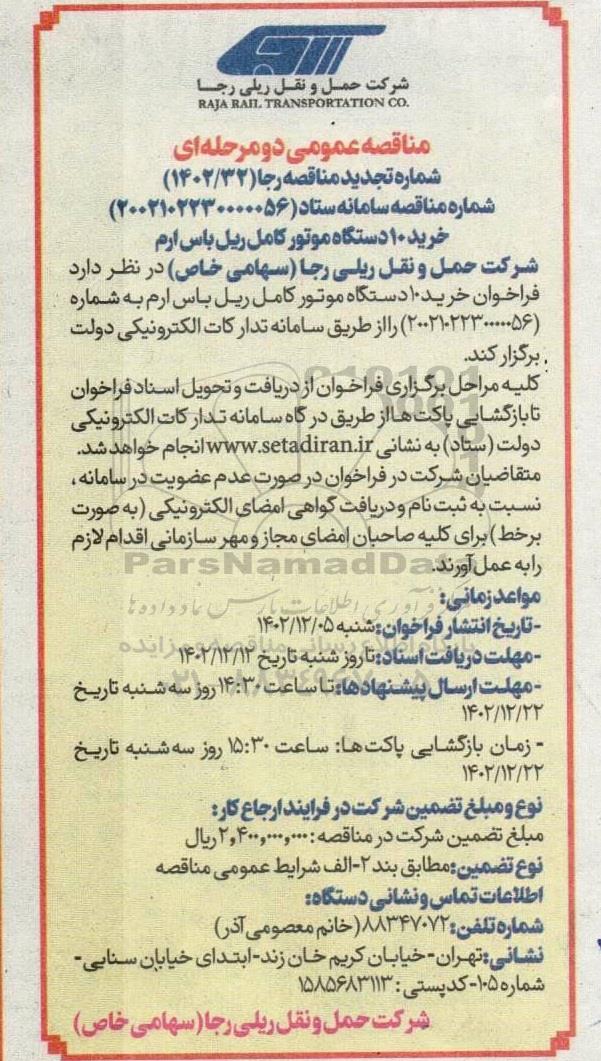 شرکت حمـل و نقـل ریلی رجـا
RAJA RAIL TRANSPORTATION CO.
مناقصه عمومی دو مرحله‌ای
شماره تجدید مناقصه رجا (۱۴۰۲/۳۲)
شماره مناقصه سامانه ستاد (۲۰۰۲۱۰۲۲۳۰۰۰۰۰۵۶)
خرید ۱۰ دستگاه موتور کامل ریل باس ارم
شرکت حمـل و نقـل ریلـی رجـا (سـهامی خـاص) در نظـر دارد
فراخـوان خریـد ۱۰ دسـتگاه موتـور کامـل ریـل بـاس ارم بـه شـماره
(۲۰۰۲۱۰۲۲۳۰۰۰۰۰۵۶) را از طریق سامانه تدارکات الکترونیکی دولت
برگزار کند.
کلیـه مراحل برگـزاری فراخـوان از دریافت و تحویل اسـناد فراخوان
تا بازگشایی پاکت‌هـا از طریق درگاه سامانه تـدارکات الکترونیکی
دولت (ستاد) به نشانی www.setadiran.ir انجام خواهد شد.
متقاضیان شـرکت در فراخوان در صورت عدم عضویت در سامانه،
نسبت به ثبت نام و دریافت گواهی امضای الکترونیکی (به صورت
برخط) برای کلیه صاحبان امضای مجاز و مهر سـازمانی اقدام لازم
را به عمل آورند.
مواعد زمانی:
-تاریخ انتشار فراخوان: شنبه ۱۴۰۲/۱۲/۰۵
-مهلت دریافت اسناد: تا روز شنبه تاریخ ۱۴۰۲/۱۲/۱۲
-مهلـت ارسـال پیشـنهادها: تـا ساعت ۱۴:۳۰ روز سه شـنبه تاریـخ
۱۴۰۲/۱۲/۲۲
- زمـان بازگشـایی پاکت هـا: سـاعت ۱۵:۳۰ روز سه شـنبه تاریـخ
۱۴۰۲/۱۲/۲۲
نوع و مبلغ تضمین شرکت در فرایند ارجاع کار:
مبلغ تضمین شرکت در مناقصه: ۲,۴۰۰,۰۰۰,۰۰۰ ریال
نوع تضمین: مطابق بند ۲-الف شرایط عمومی مناقصه
اطلاعات تماس و نشانی دستگاه:
شماره تلفن: ۸۸۳۴۷۰۷۲ (خانم معصومی آذر)
نشـانی: تهـران- خیابـان کریم خـان زنـد- ابتـدای خیابان سـنایی-
شماره ۱۰۵- کدپستی: ۱۵۸۵۶۸۳۱۱۳
شرکت حمل و نقل ریلی رجا (سهامی خاص)
ParsNamadData